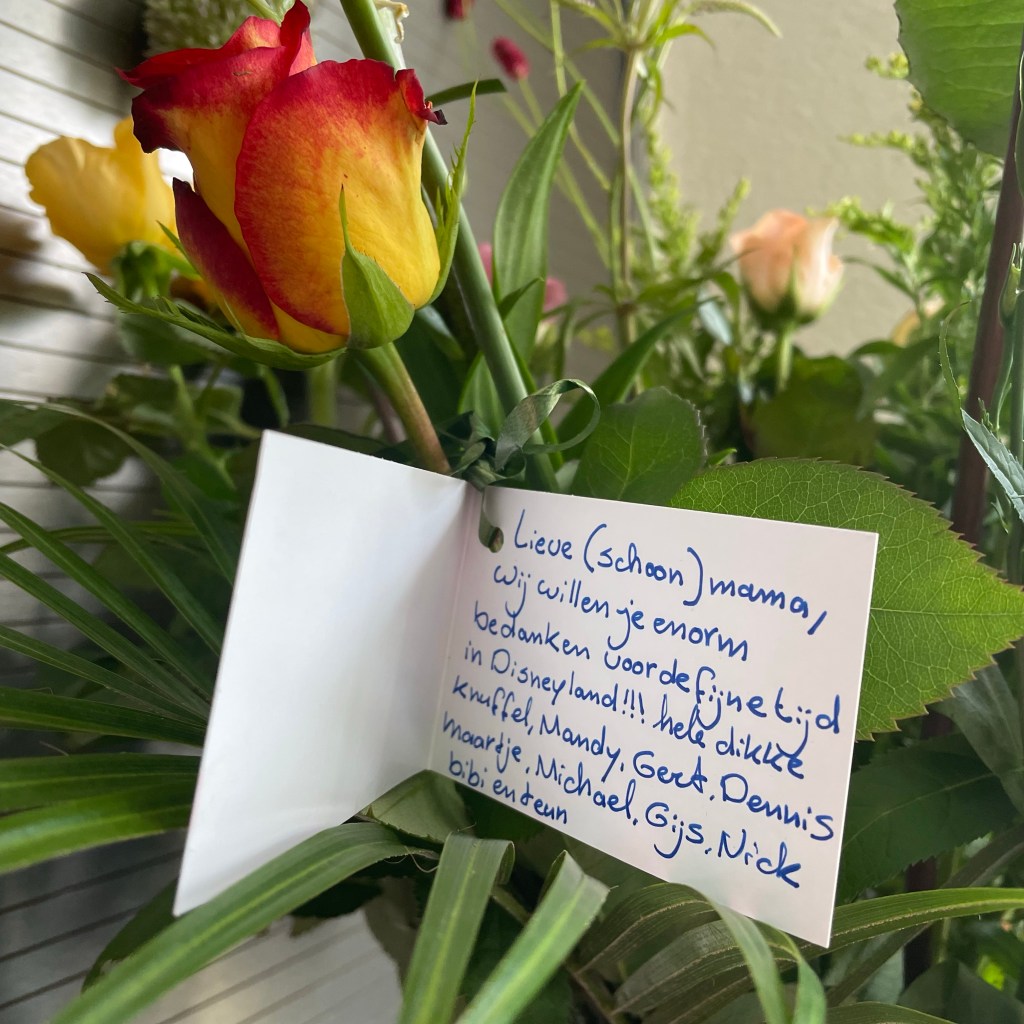 Lieve (schoon)mama,
wij willen je enorm
bedanken voor de fijne tijd
in Disneyland!!! hele dikke
knuffel, Mandy, Gert, Dennis
maartje, Michael, Gijs, Nick
bibi en teun